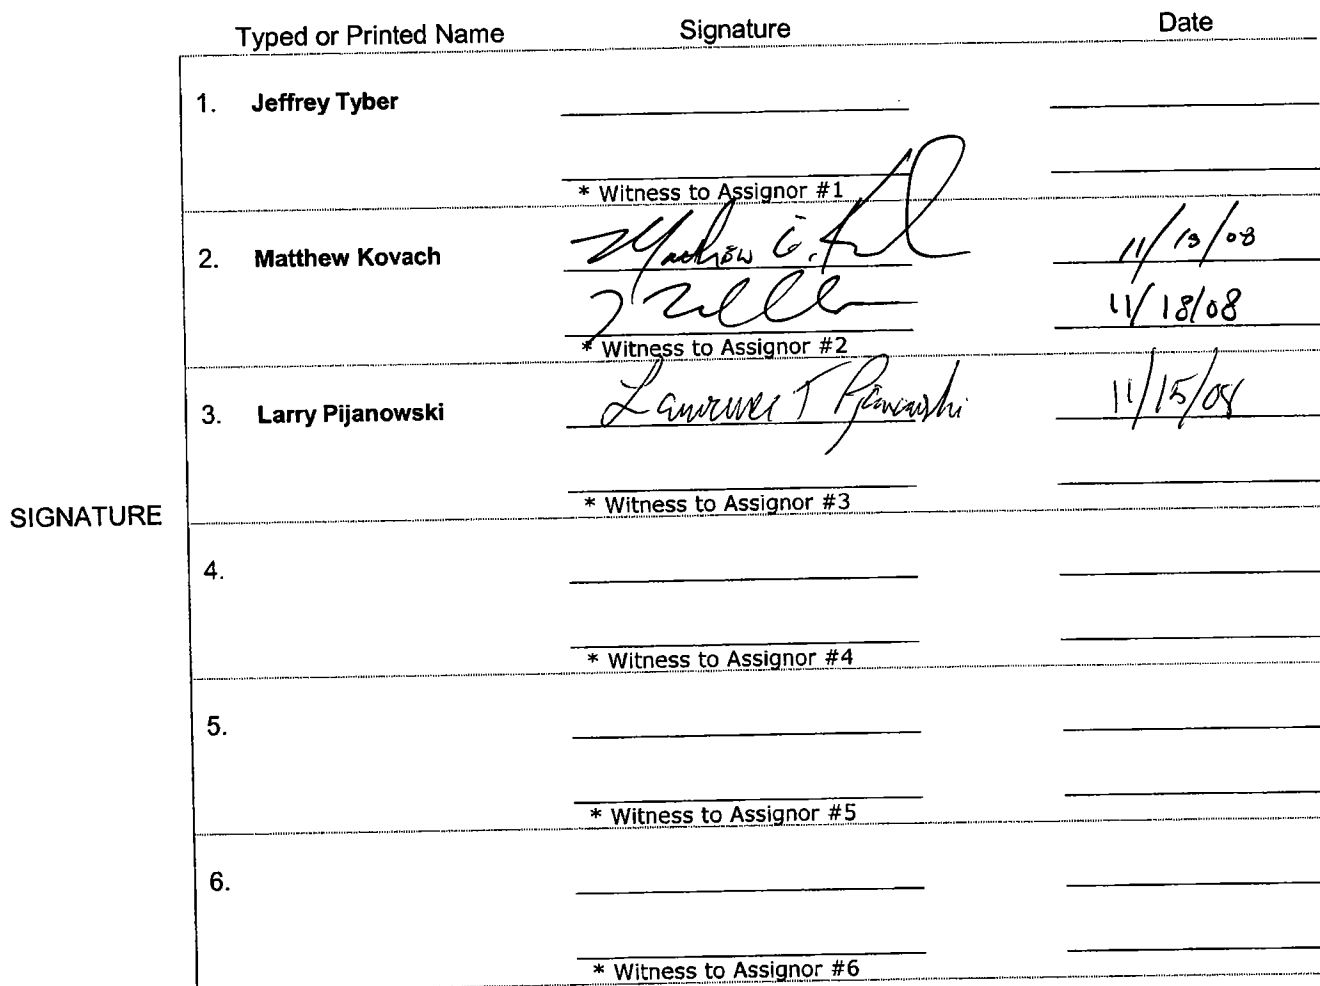 Typed or Printed Name Signature Date
1. Jeffrey Tyber
* Witness to Assignor #1
2. Matthew Kovach 11/13/08
11/18/08
* Witness to Assignor #2
3. Larry Pijanowski Lawrence T Pijanowski 11/15/08
* Witness to Assignor #3
SIGNATURE
4.
* Witness to Assignor #4
5.
* Witness to Assignor #5
6.
* Witness to Assignor #6